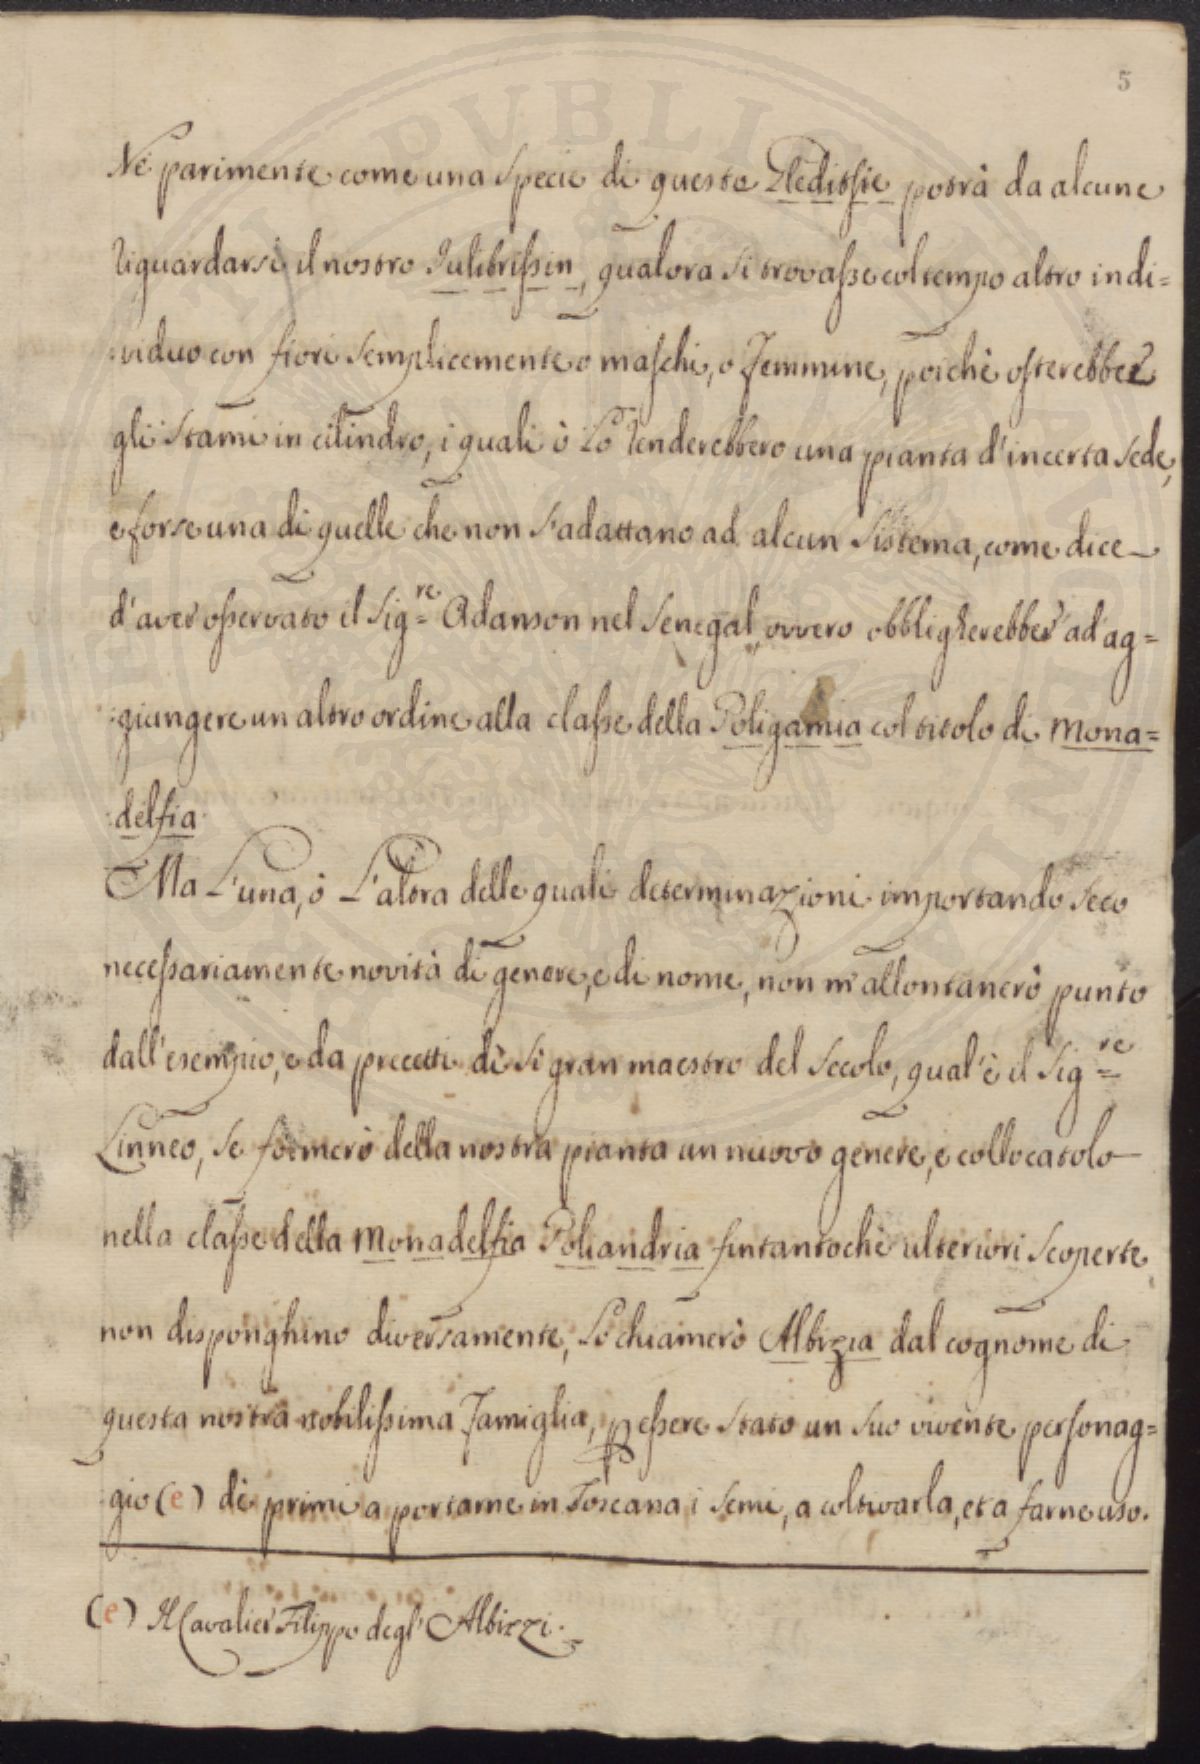 5
Ne parimente come una specie di queste Gleditsie potrà da alcune
riguardarsi il nostro Julibrissin, qualora si trovasse col tempo altro indi=
:viduo con fiori semplicemente o maschi, o femmine, poichè osterebber
gli stami in cilindro, i quali ò lo renderebbero una pianta d'incerta sede,
e forse una di quelle che non s'adattano ad alcun sistema, come dice
d'aver osservato il Sig.re Adanson nel Senegal, ovvero obbligherebber ad ag=
:giungere un altro ordine alla classe della Poligamia col titolo di Mona=
:delfia.
Ma L'una, ò L'altra delle quali determinazioni importando seco
necessariamente novità di genere, e di nome, non m'allontanerò punto
dall'esempio, e da precetti di sì gran maestro del secolo, qual'è il Sig.re
Linneo, se formerò della nostra pianta un nuovo genere, e collocatolo
nella classe della Monadelfia Poliandria fintantochè ulteriori scoperte
non disponghino diversamente, Lo chiamerò Albizia dal cognome di
questa nostra nobilissima Famiglia, p essere stato un suo vivente personag=
gio (e) di primi a portarne in Toscana i semi, a coltivarla, et a farne uso.
(e) Il Cavalier Filippo degl' Albizzi.